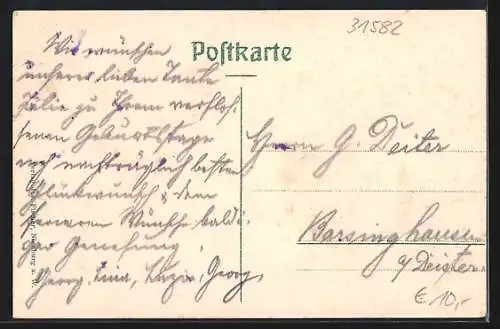 31582
Postkarte
Wir wünschen
unserer lieben Tante
Julie zu Ihrem verflos-
senen Geburtstage
noch nachträglich besten
Glückwunsch & den
ferneren Wunsch baldi-
ger Genesung.
Georg, Lina, Georg.
Herrn G. Deiter
Barsinghausen
a/Deister
€ 10,-